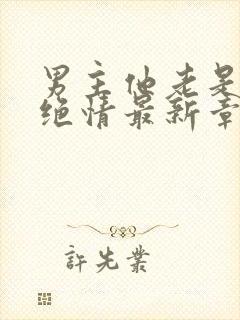 男主他老是
绝情最新章
許先業